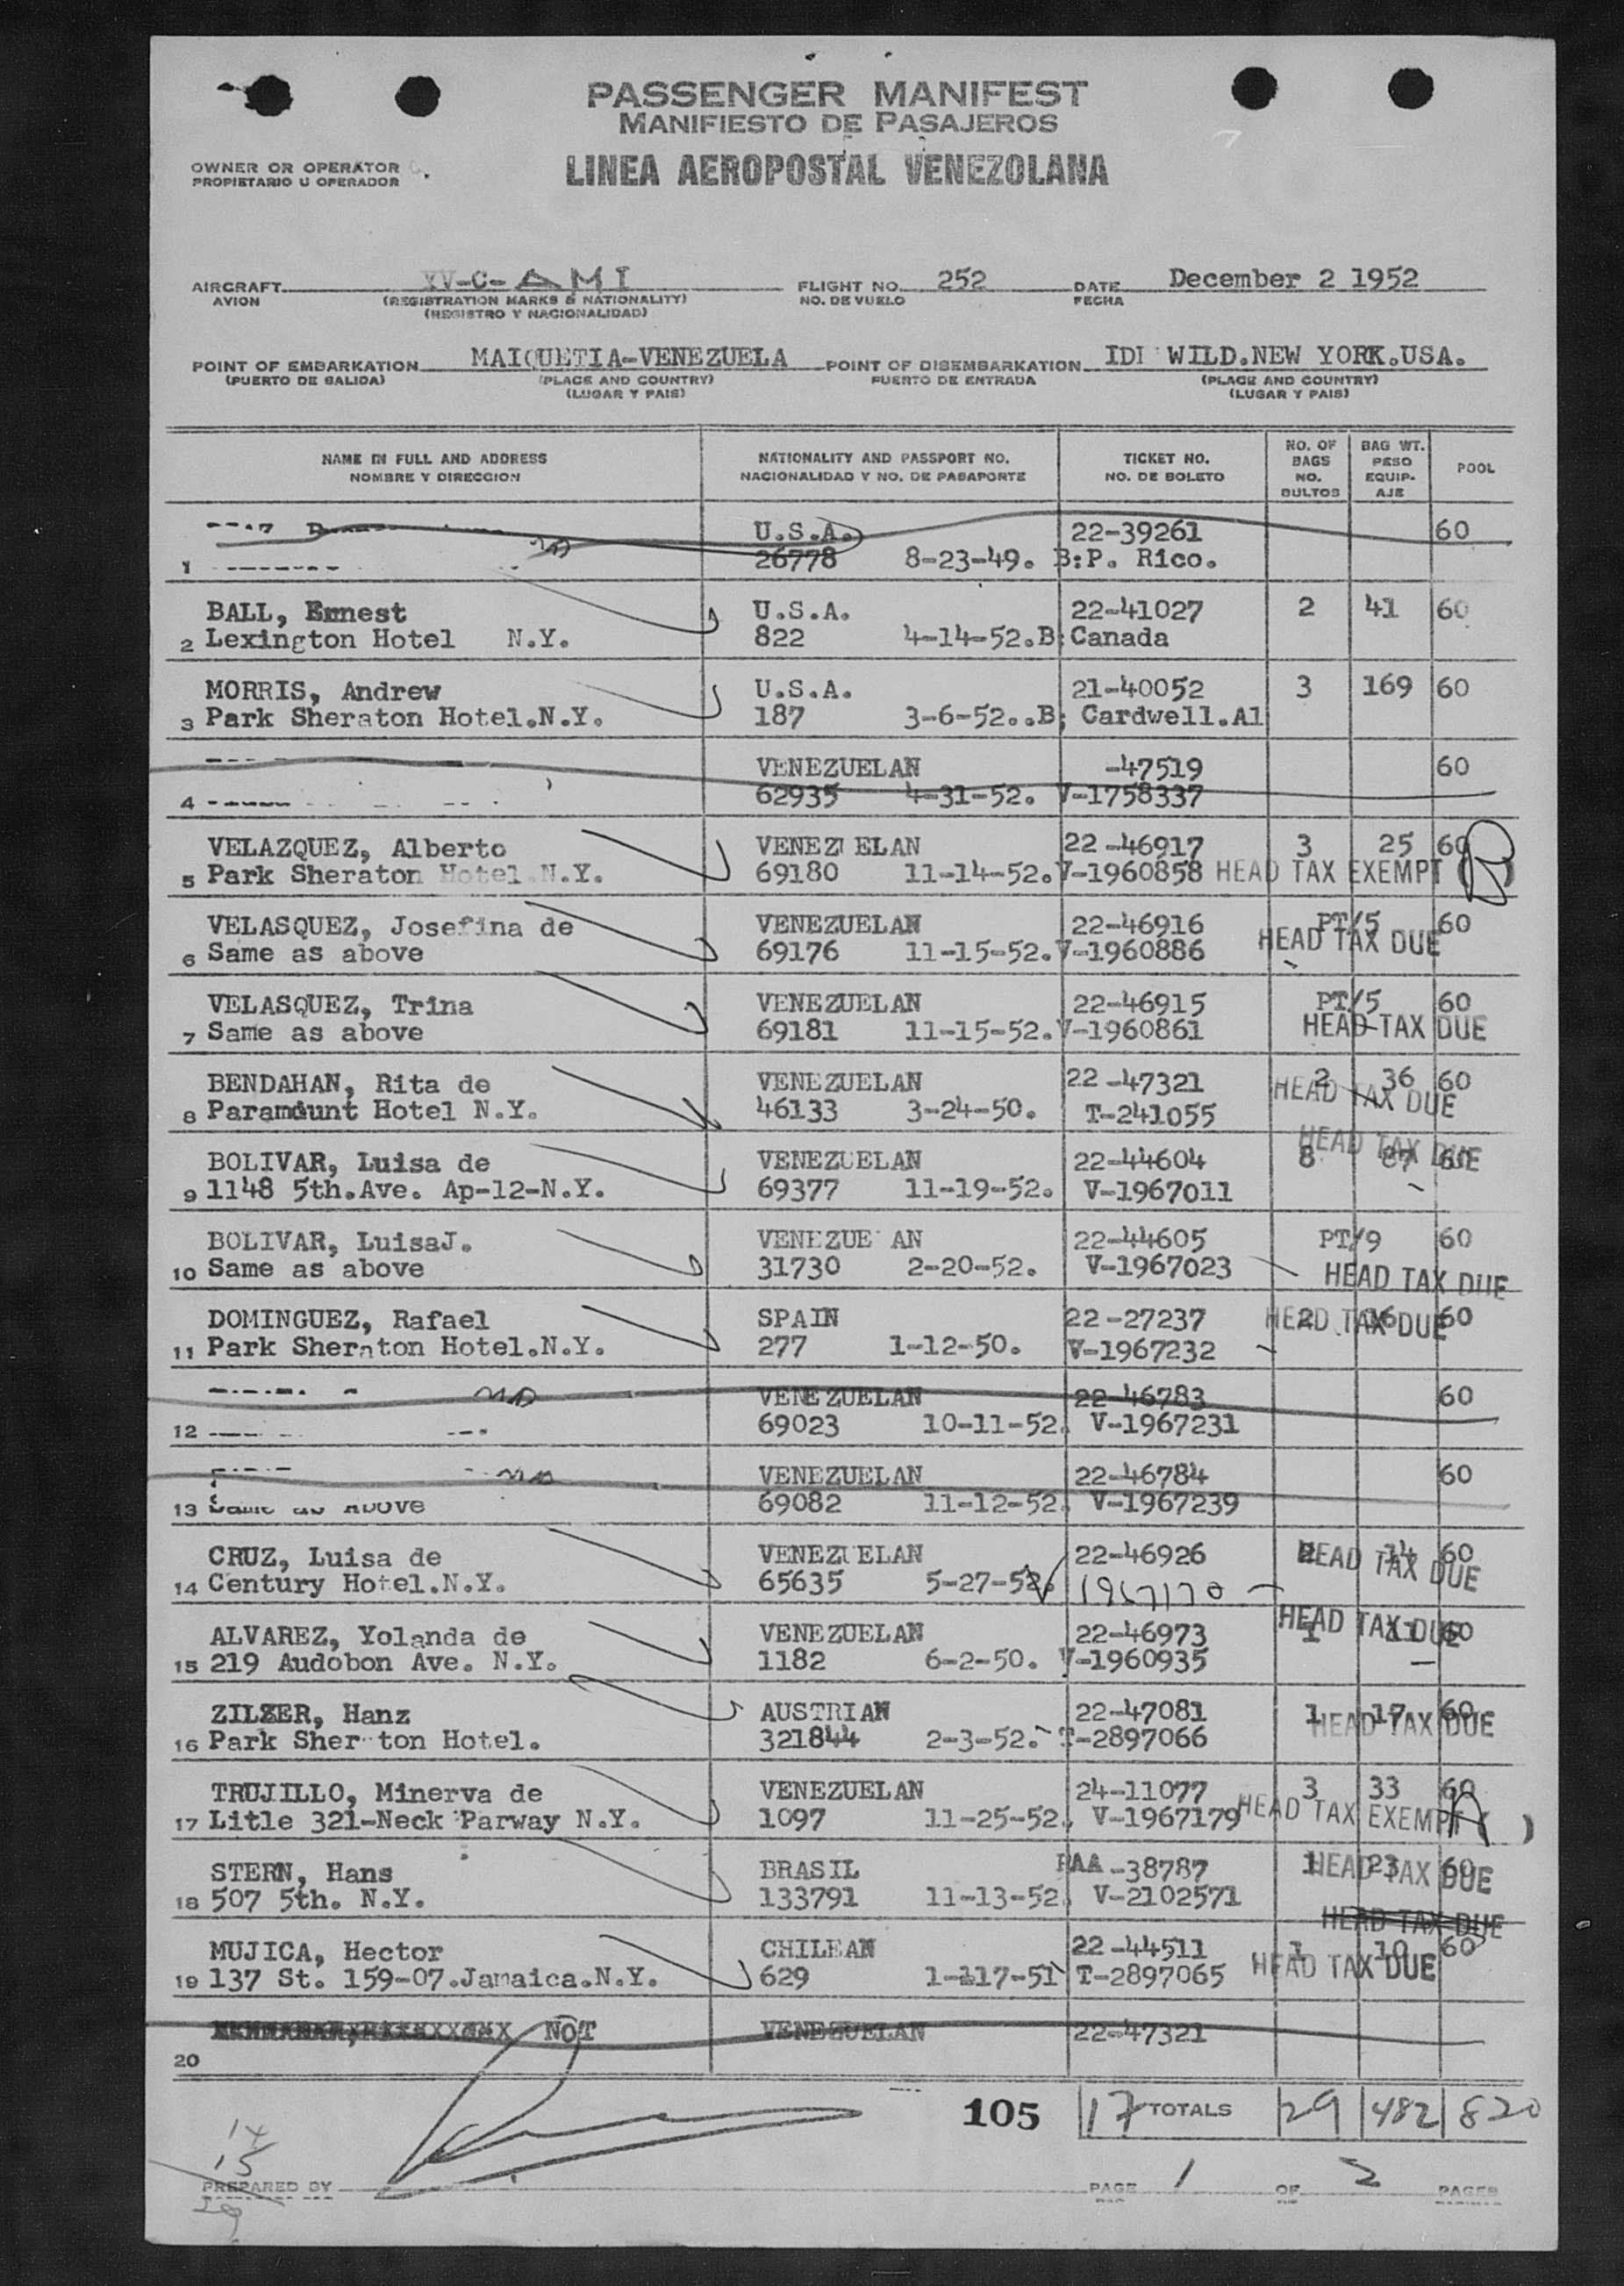 PASSENGER MANIFEST
MANIFIESTO DE PASAJEROS
OWNER OR OPERATOR
PROPIETARIO U OPERADOR
LINEA AEROPOSTAL VENEZOLANA
AIRCRAFT XV-C-AMI FLIGHT NO. 252 DATE December 2 1952
AVION (REGISTRATION MARKS & NATIONALITY) NO. DE VUELO FECHA
(REGISTRO Y NACIONALIDAD)
POINT OF EMBARKATION MAIQUETIA-VENEZUELA POINT OF DISEMBARKATION IDI WILD.NEW YORK.USA.
(PUERTO DE SALIDA) (PLACE AND COUNTRY) PUERTO DE ENTRADA (PLACE AND COUNTRY)
(LUGAR Y PAIS) (LUGAR Y PAIS)
NAME IN FULL AND ADDRESS NATIONALITY AND PASSPORT NO. TICKET NO. NO. OF BAGS BAG WT. POOL
NOMBRE Y DIRECCION NACIONALIDAD Y NO. DE PASAPORTE NO. DE BOLETO NO. BULTOS PESO EQUIP-AJE
U.S.A. 22-39261 60
1 26778 8-23-49. B:P. Rico.
BALL, Ernest U.S.A. 22-41027 2 41 60
2 Lexington Hotel N.Y. 822 4-14-52.B:Canada
MORRIS, Andrew U.S.A. 21-40052 3 169 60
3 Park Sheraton Hotel.N.Y. 187 3-6-52..B; Cardwell.Al
VENEZUELAN -47519 60
4 62935 4-31-52. V-1758337
VELAZQUEZ, Alberto VENEZ ELAN 22-46917 3 25 60
5 Park Sheraton Hotel.N.Y. 69180 11-14-52.V-1960858 HEAD TAX EXEMPT (B)
VELASQUEZ, Josefina de VENEZUELAN 22-46916 PT/5 60
6 Same as above 69176 11-15-52.V-1960886 HEAD TAX DUE
VELASQUEZ, Trina VENEZUELAN 22-46915 PT/5 60
7 Same as above 69181 11-15-52.V-1960861 HEAD TAX DUE
BENDAHAN, Rita de VENEZUELAN 22-47321 2 36 60
8 Paramount Hotel N.Y. 46133 3-24-50. T-241055 HEAD TAX DUE
HEAD TAX DUE
BOLIVAR, Luisa de VENEZUELAN 22-44604 8 87 60
9 1148 5th.Ave. Ap-12-N.Y. 69377 11-19-52. V-1967011
BOLIVAR, LuisaJ. VENEZUE AN 22-44605 PT/9 60
10 Same as above 31730 2-20-52. V-1967023 HEAD TAX DUE
DOMINGUEZ, Rafael SPAIN 22-27237 2 16 60 HEAD TAX DUE
11 Park Sheraton Hotel.N.Y. 277 1-12-50. V-1967232
VENEZUELAN 22-46783 60
12 69023 10-11-52. V-1967231
VENEZUELAN 22-46784 60
13 Same as above 69082 11-12-52. V-1967239
CRUZ, Luisa de VENEZUELAN 22-46926 2 14 60 HEAD TAX DUE
14 Century Hotel.N.Y. 65635 5-27-52. V 1967170
HEAD TAX DUE
ALVAREZ, Yolanda de VENEZUELAN 22-46973 1 11 60
15 219 Audobon Ave. N.Y. 1182 6-2-50. V-1960935
ZILZER, Hanz AUSTRIAN 22-47081 1 17 60 HEAD TAX DUE
16 Park Sher ton Hotel. 321844 2-3-52. T-2897066
TRUJILLO, Minerva de VENEZUELAN 24-11077 3 33 60
17 Litle 321-Neck Parway N.Y. 1097 11-25-52. V-1967179 HEAD TAX EXEMPT (A)
STERN, Hans BRASIL PAA-38787 1 23 60 HEAD TAX DUE
18 507 5th. N.Y. 133791 11-13-52. V-2102571
HEAD TAX DUE
MUJICA, Hector CHILEAN 22-44511 1 10 60
19 137 St. 159-07.Jamaica.N.Y. 629 1-117-51 T-2897065 HEAD TAX DUE
NOT VENEZUELAN 22-47321
20
105 17 TOTALS 29 482 820
14
15
PREPARED BY PAGE 1 OF 2 PAGES
29